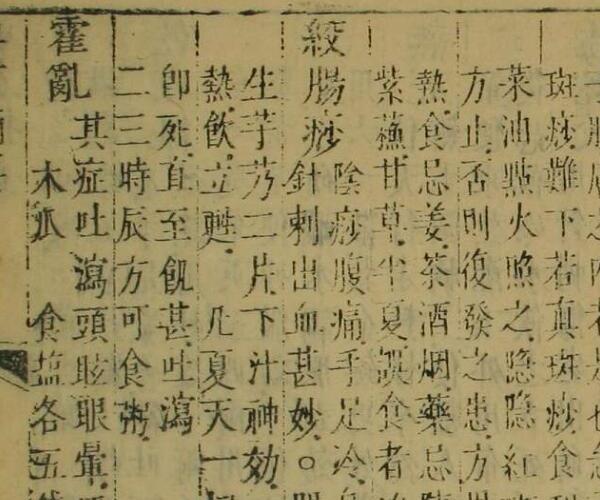 斑痧難下若真斑痧食
菜油點火照之隐隐紅
方止否則復發之患方
熱食忌姜茶酒烟藥忌
紫蘇甘草半夏誤食者
絞腸痧 陰痧腹痛手足冷
針剌出血甚妙○
生芋艿二片下汁神効
熱飲立甦 凡夏天一
卽死直至飢甚吐瀉
二三時辰方可食粥
霍亂 其症吐瀉頭眩眼暈
木瓜 食塩各五